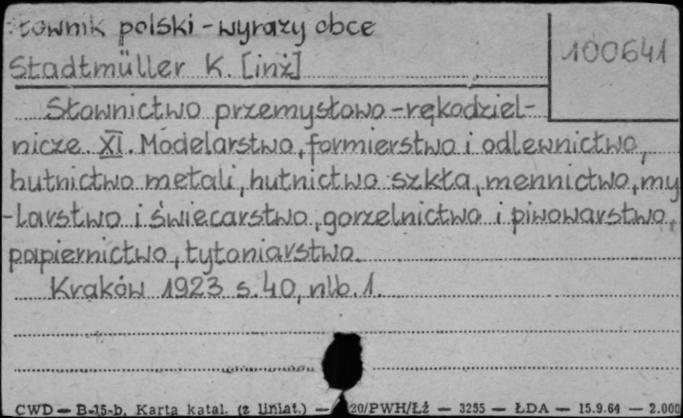 Słownik polski - wyrazy obce
100641
Stadtmüller K. [inż]
Słownictwo przemysłowo-rękodziel-
nicze XI. Modelarstwo, formierstwo i odlewnictwo,
hutnictwo metali, hutnictwo szkła, mennictwo, my
-larstwo i świecarstwo, gorzelnictwo i piwowarstwo,
papiernictwo, tytoniarstwo.
Kraków 1923 s. 40, nlb. 1.
CWD — B-15-b, Karta katal. (z liniat.) — 20/PWH/Łź — 3255 — ŁDA — 15.9.64 — 2.000